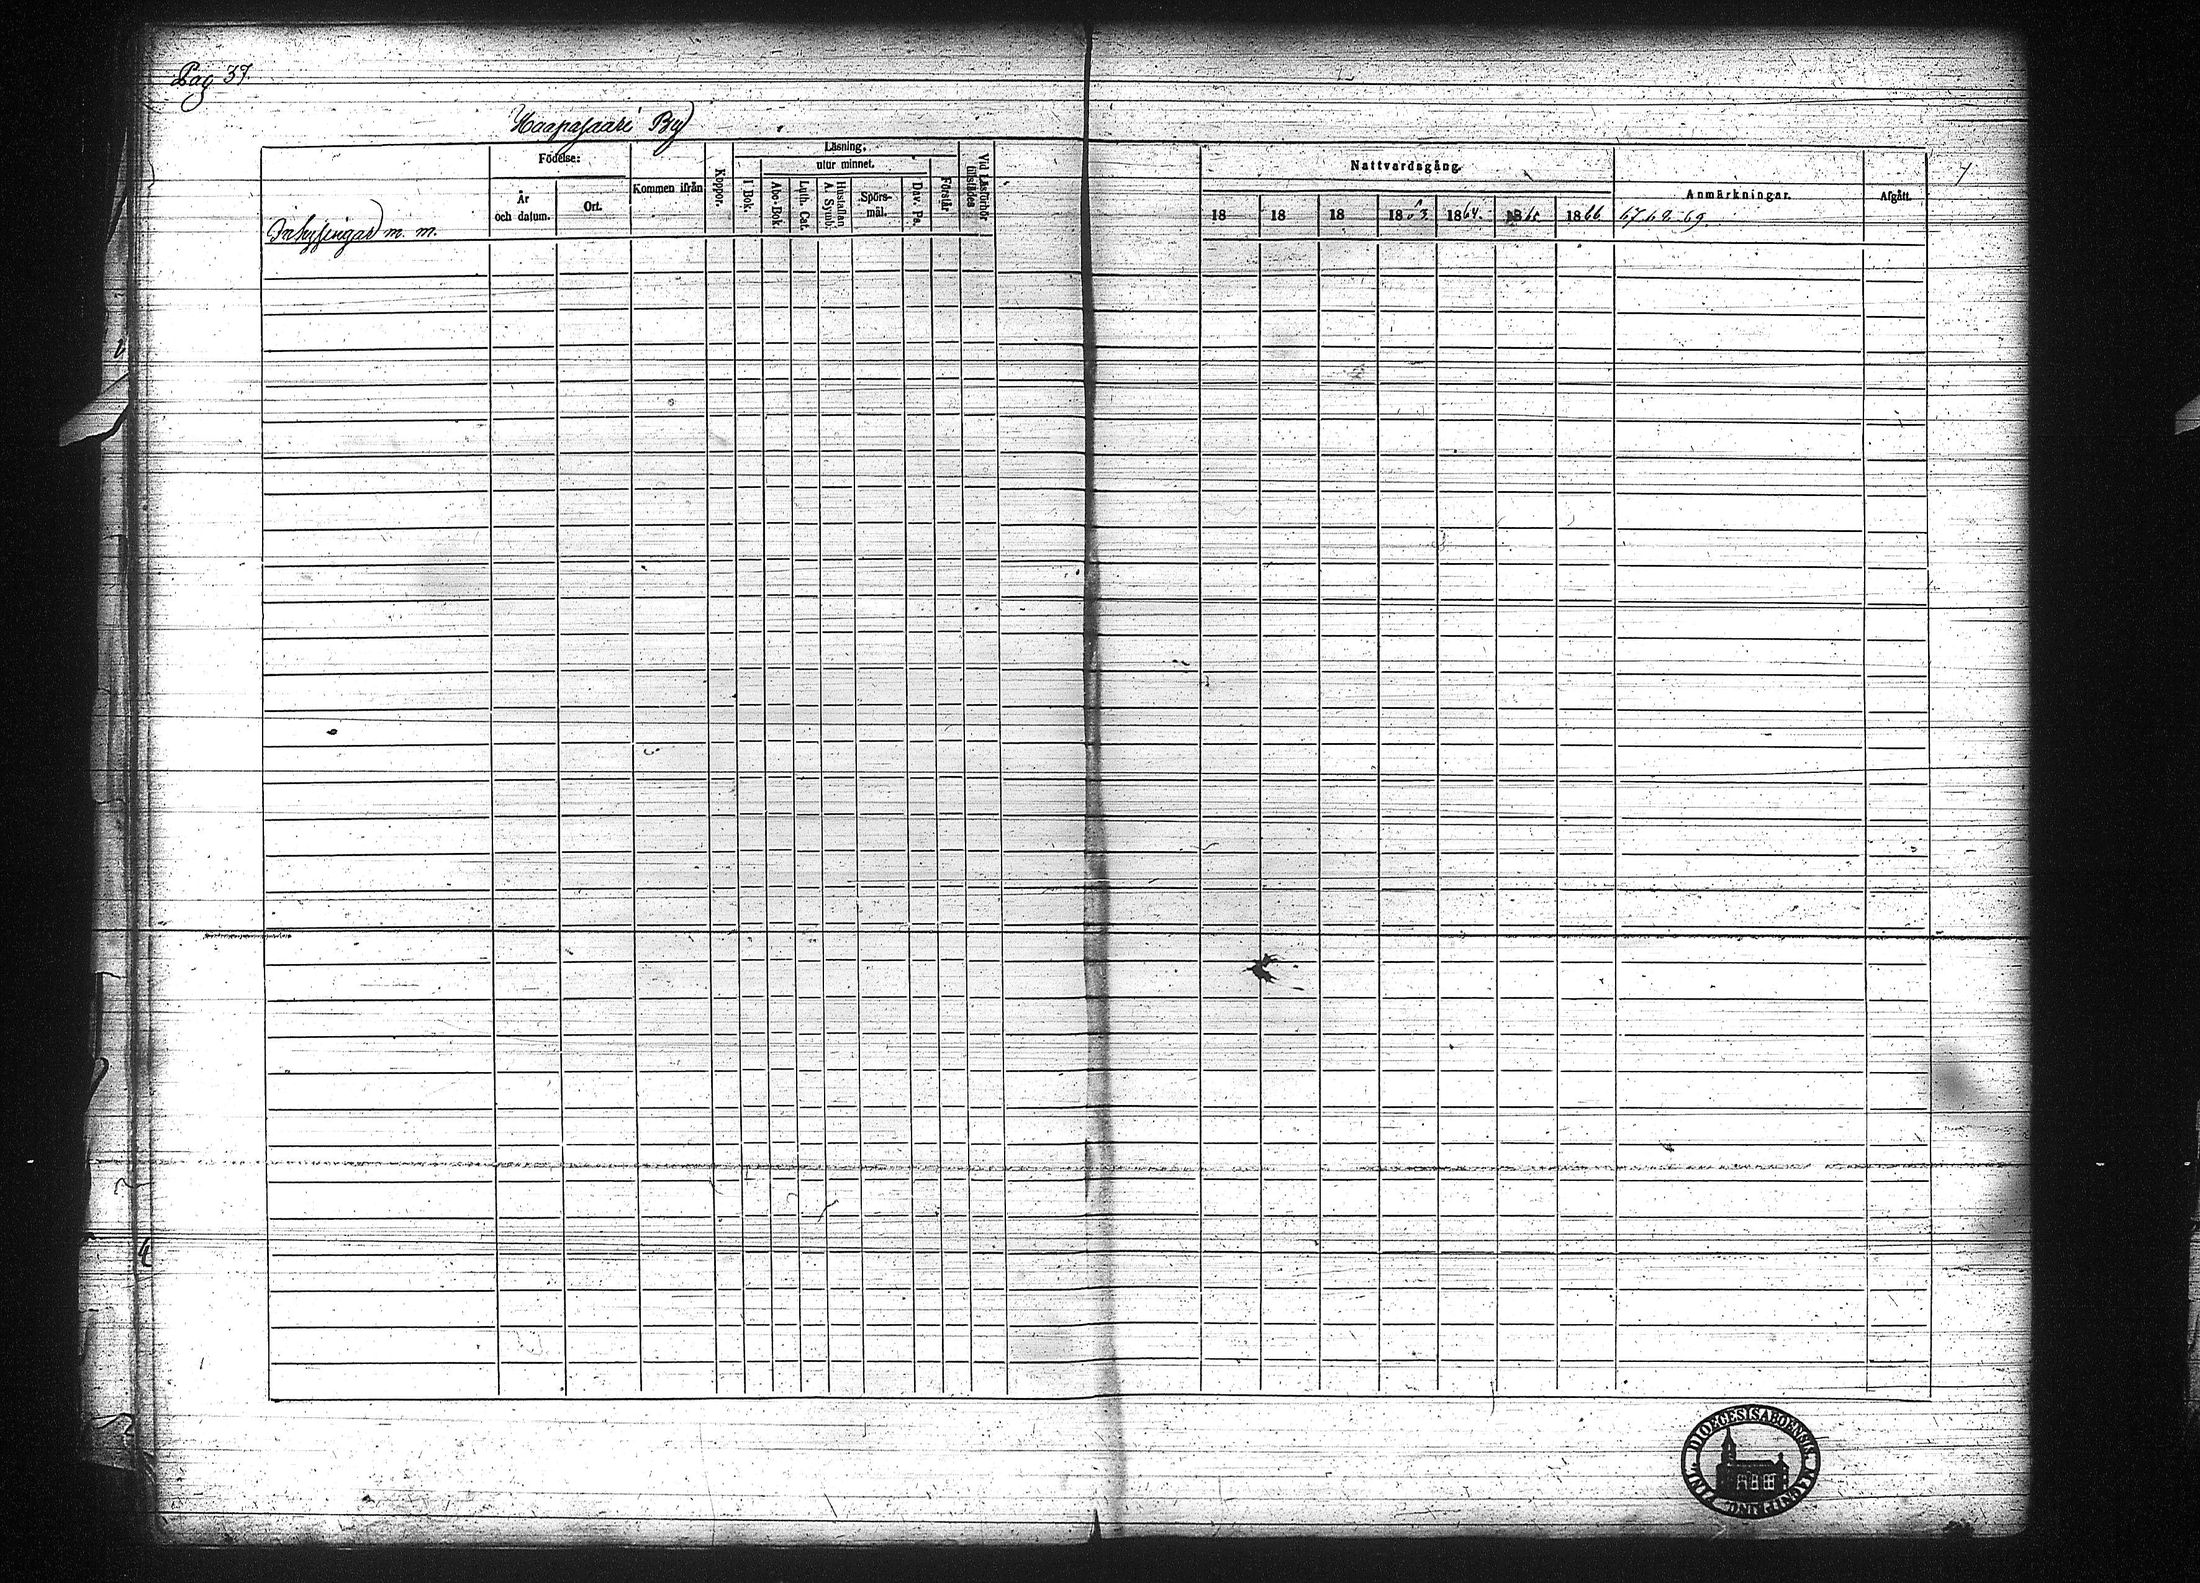 Pag 37.
Haapasaari By
Födelse:
År
och datum.
Ort.
Kommen ifrån
Koppor.
Läsning,
utur minnet.
I Bok.
Abc-Bok.
Luth. Cat.
Hustaflan
A. Symb.
Spörs-
mål.
Dav. Ps.
Förstår
Vid Läsförhör
tillstädes
Inhysingar m. m.
Nattvardsgång.
18 18 18 1863 1864. 1865 1866
Anmärkningar.
67. 68. 69.
Afgått.
DIOECESIS ABOENSIS MAGNI PRINC. FINL.